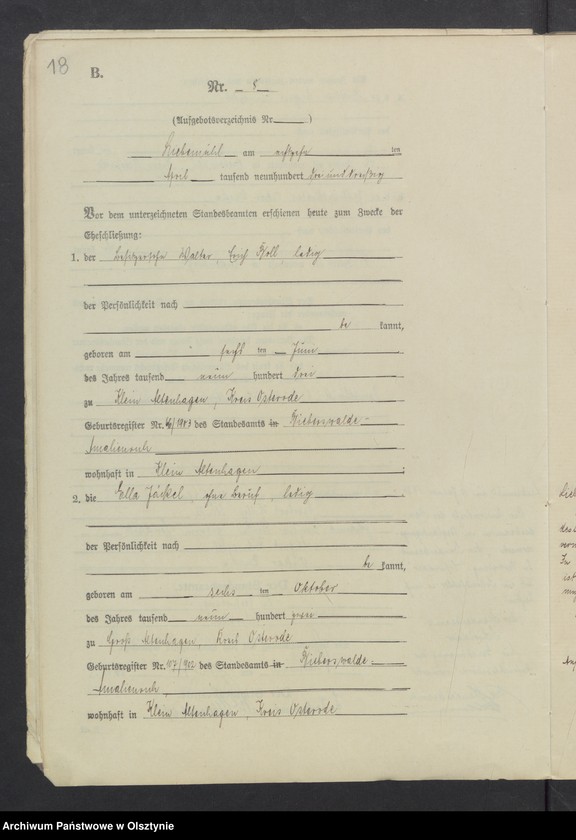 18
B.
Nr. 8
(Aufgebotsverzeichnis Nr. )
Liebemühl am achtzehn ten
April tausend neunhundert drei und dreißig
Vor dem unterzeichneten Standesbeamten erschienen heute zum Zwecke der
Eheschließung:
1. der Besitzersohn Walter, Erich Koll, ledig
der Persönlichkeit nach
be kannt,
geboren am sechs ten Juni
des Jahres tausend neun hundert drei
zu Klein Altenhagen, Kreis Osterode
Geburtsregister Nr. /1903 des Standesamts in Bieberswalde-
Amalienruh
wohnhaft in Klein Altenhagen
2. die Ella Jäckel, ohne Beruf, ledig
der Persönlichkeit nach
be kannt,
geboren am sechs ten Oktober
des Jahres tausend neun hundert zwei
zu Groß Altenhagen, Kreis Osterode
Geburtsregister Nr. 117/902 des Standesamts in Bieberswalde-
Amalienruh
wohnhaft in Klein Altenhagen, Kreis Osterode
Archiwum Państwowe w Olsztynie